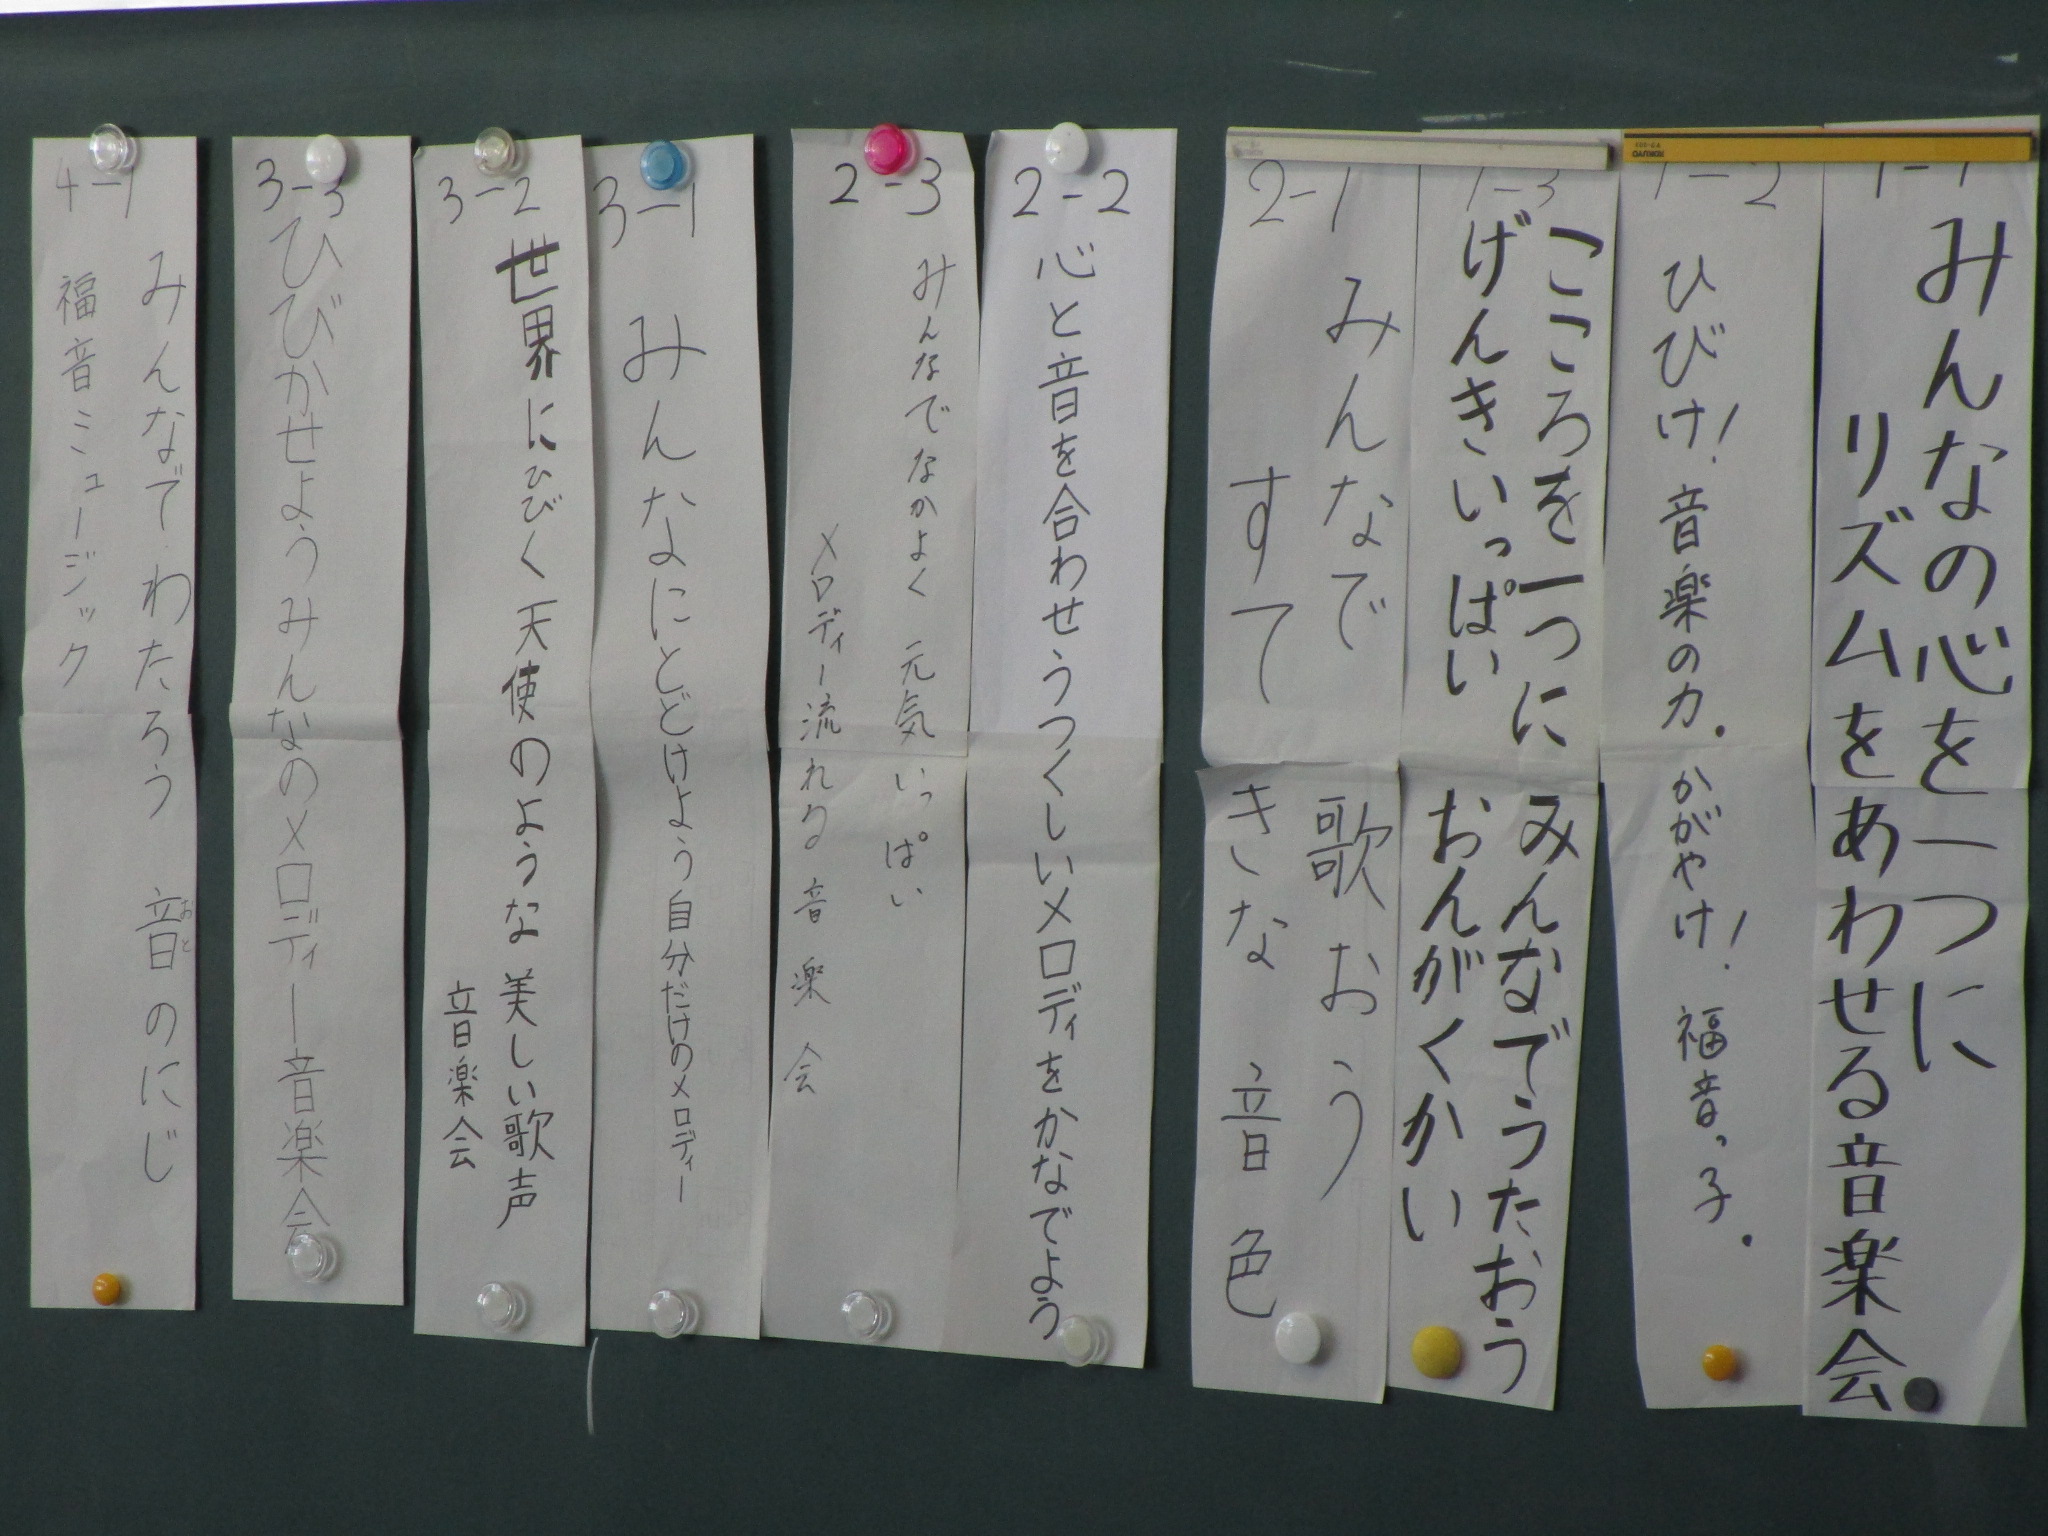 1-1
みんなの心を一つに
リズムをあわせる音楽会
1-2
ひびけ!音楽の力。かがやけ!福音っ子。
1-3
こころを一つに みんなでうたおう
げんきいっぱい おんがくかい
2-1
みんなで 歌おう
すてきな 音色
2-2
心と音を合わせうつくしいメロディをかなでよう
2-3
みんなでなかよく 元気いっぱい
メロディー流れる音楽会
3-1
みんなにとどけよう自分だけのメロディー
3-2
世界にひびく天使のような美しい歌声
音楽会
3-3
ひびかせようみんなのメロディー音楽会
4-1
みんなでわたろう 音のにじ
おと
福音ミュージック
KOKUYO